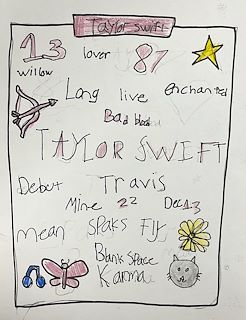 Taylor swift
13 lover 87
willow
Long live enchanted
Bad blood
TAYLOR SWIFT
Debut Travis
Mine 22 Dec 13
mean SPaks Fly
Blank Space
Karma